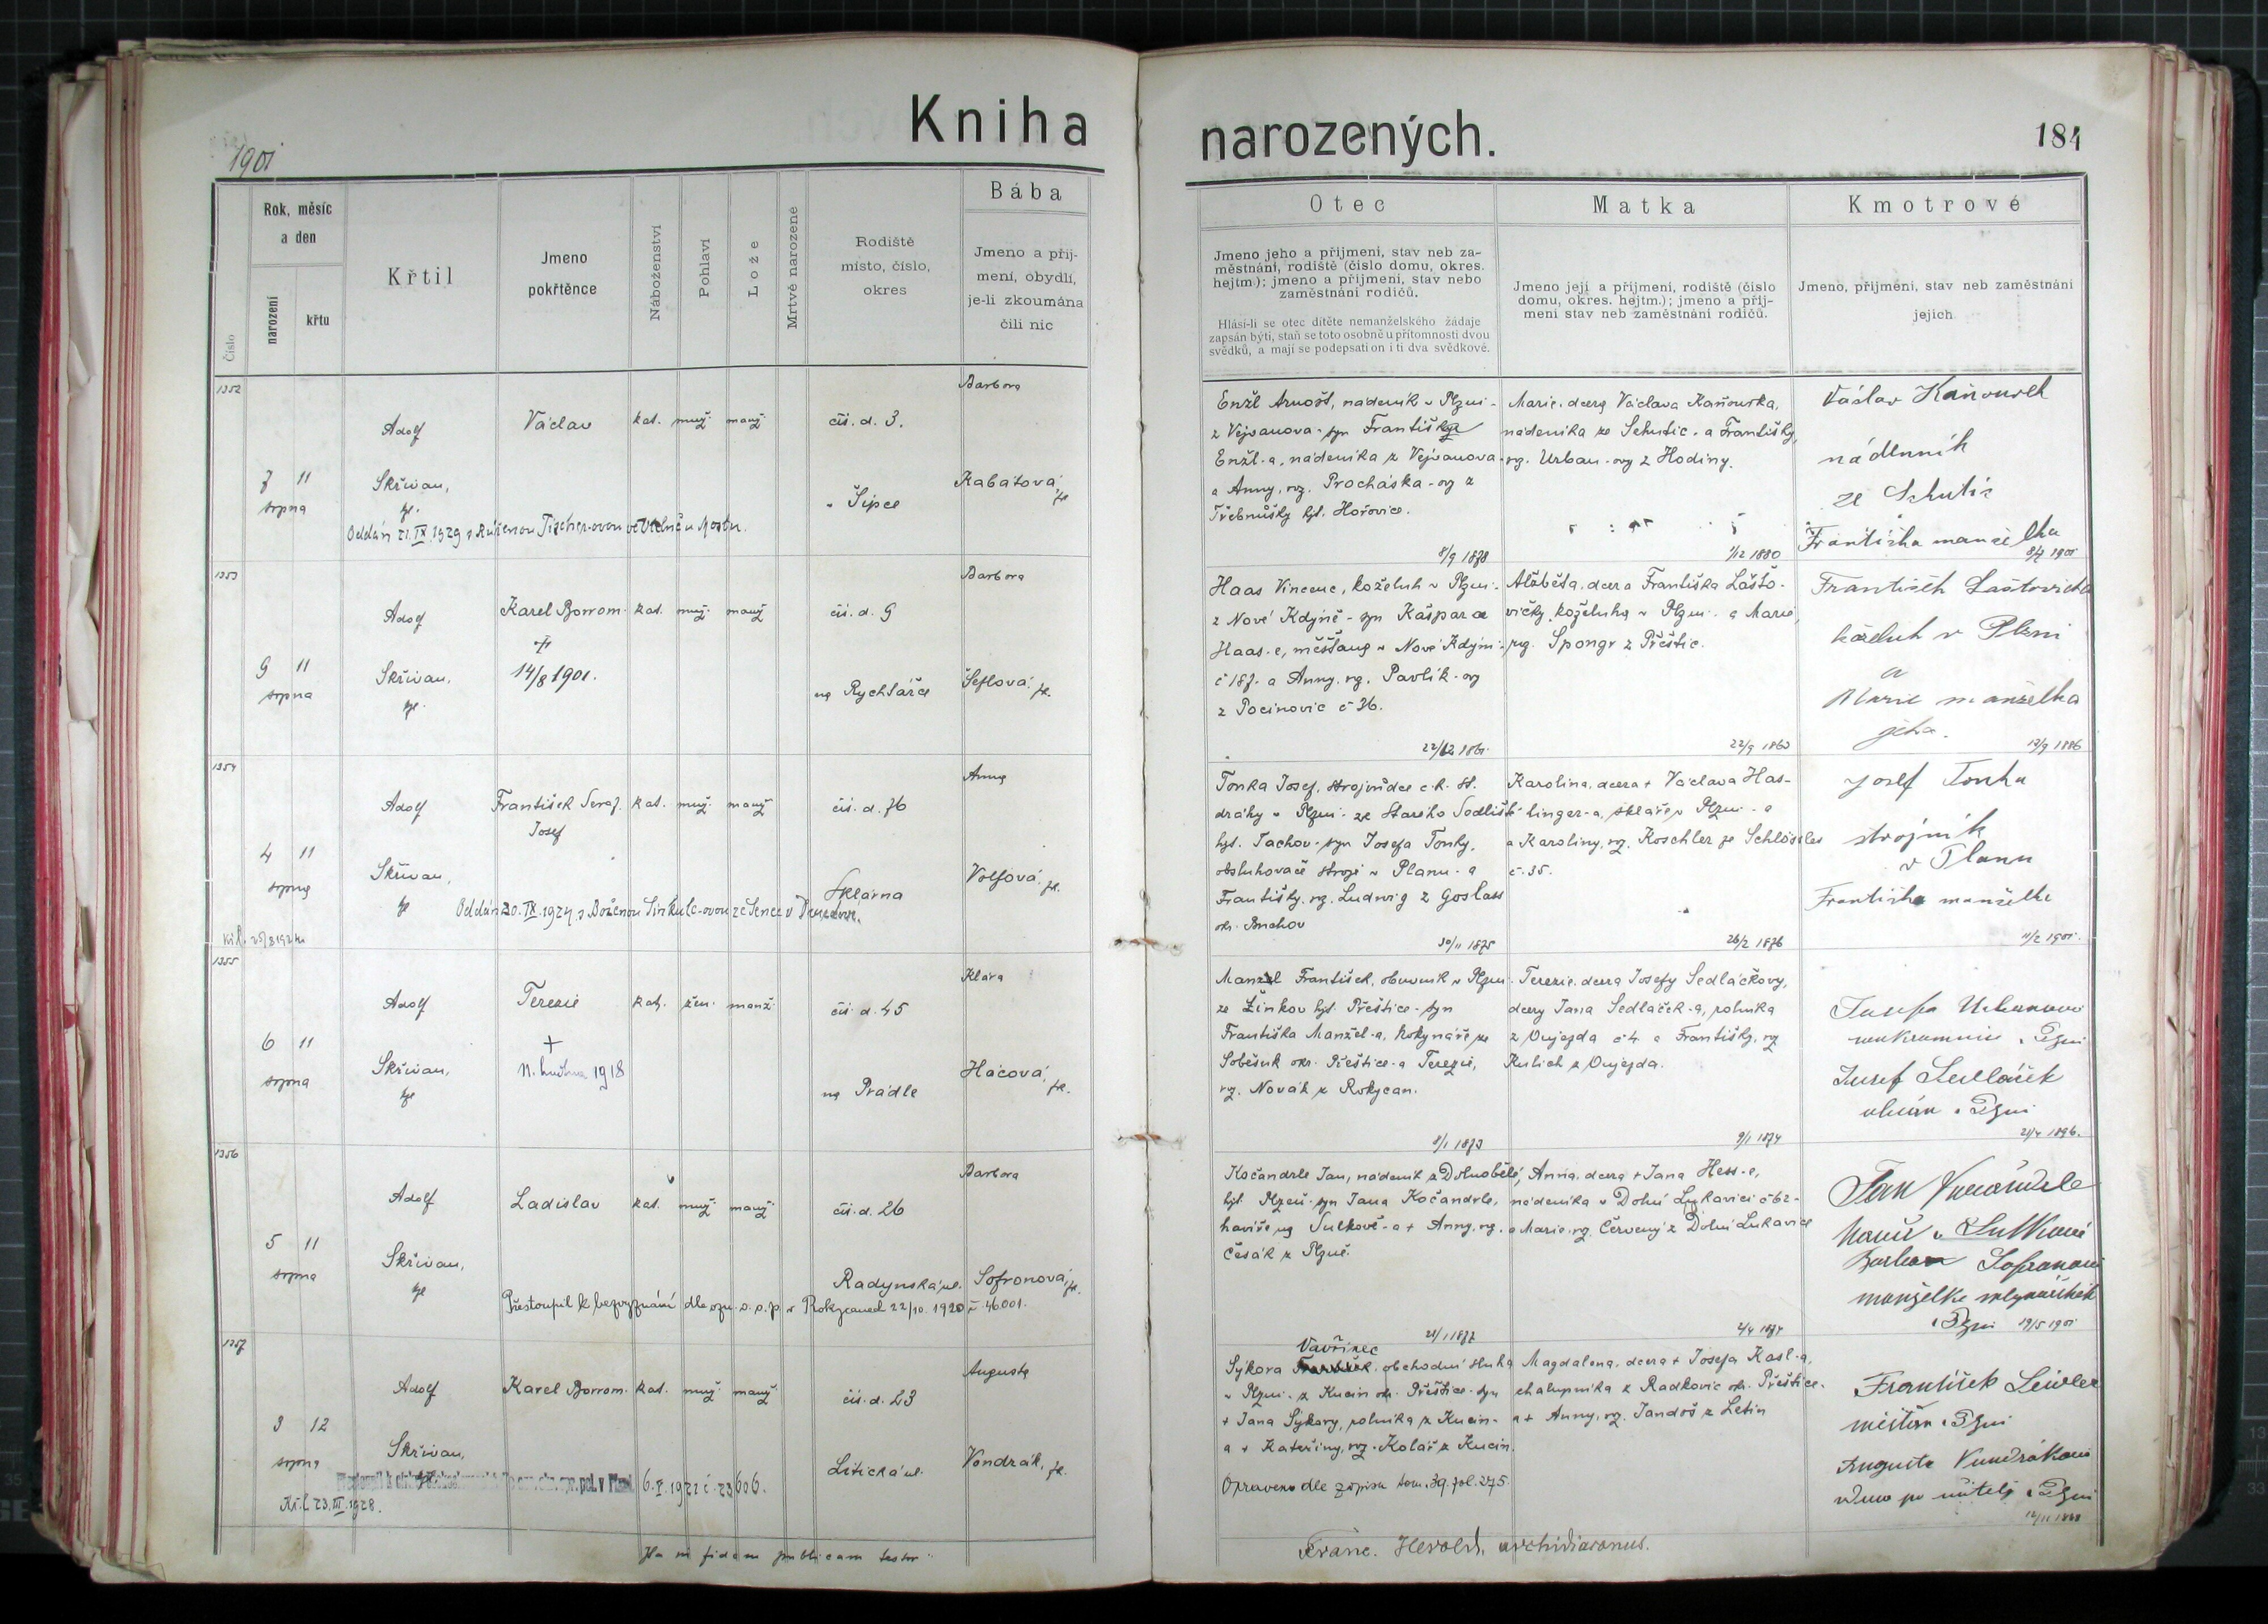 Kniha
narozených.
184
1901
Číslo
Rok, měsíc
a den
narození
křtu
Křtil
Jmeno
pokřtěnce
Náboženství
Pohlaví
Lože
Mrtvě narozené
Rodiště
místo, číslo,
okres
Bába
Jmeno a příj-
mení, obydlí,
je-li zkoumána
čili nic
Otec
Jmeno jeho a příjmení, stav neb za-
městnání, rodiště (číslo domu, okres.
hejtm.); jmeno a příjmení, stav nebo
zaměstnání rodičů.
Hlásí-li se otec dítěte nemanželského žádaje
zapsán býti, staň se toto osobně u přítomnosti dvou
svědků, a mají se podepsati on i ti dva svědkové.
Matka
Jmeno její a příjmení, rodiště (číslo
domu, okres. hejtm.); jmeno a příj-
mení stav neb zaměstnání rodičů.
Kmotrové
Jmeno, příjmení, stav neb zaměstnání
jejich
1352
7 11
srpna
Adolf
Skřivan,
Václav
kat. muž. manž.
čís. d. 3.
v Šipce
Barbora
Kabátová
Oddán 21. IX. 1929 s Růženou Tischer-ovou
Enžl Arnošt, nádeník v Plzni -
z Vejvanova - syn Františka
Enžl-a, nádeníka z Vejvanova -
a Anny, roz. Procháska-ov z
Třebnůšky hjt. Hořovice.
8/9 1878
Marie, dcera Václava Kaňourka,
nádeníka ze Sehutic - a Františky,
roz. Urban-ov z Hodiny.
1/12 1880
Václav Kaňourek
nádenník
ze Sehutic
Františka manželka
1353
9 11
srpna
Adolf
Skřivan,
Karel Borrom.
14/8 1901.
kat. muž. manž.
čís. d. 9
na Rychtářce
Barbora
Šeflová
Haas Vincenc, koželuh v Plzni -
z Nové Kdyně - syn Kašpara
Haas-e, měšťana v Nové Kdyni -
č 187. a Anny, roz. Pavlík-ov
z Pocinovic č 36.
Alžběta, dcera Františka Lášto-
vičky, koželuha v Plzni - a Marie,
roz. Spongr z Přeštic.
22/9 1863
František Laštovička
koželuh v Plzni
a
Marie manželka
jeho.
13/9 1886
1354
4 11
srpna
Adolf
Skřivan,
František Seraf.
Josef
kat. muž. manž.
čís. d. 76
Sklárna
Anna
Volfová
Oddán 20. IX. 1924 s Boženou Šinkule-ovou ze Senec u
Tonka Josef, strojvůdce c. k. st.
dráhy v Plzni - ze Starého Sedliště
hjt. Tachov - syn Josefa Tonky,
obsluhovače strojů v Planu - a
Františky, roz. Ludwig z Goslass
okr. Buchov
30/11 1875
Karolina, dcera + Václava Has-
linger-a, skláře v Plzni - a
a Karoliny, roz. Koschler ze Schlössles
č. 35.
26/2 1876
Josef Tonka
strojník
v Planu
Františka manželka
11/2 1901.
1355
6 11
srpna
Adolf
Skřivan,
Terezie
+
11. 1918
kat. žen. manž.
čís. d. 45
na Prádle
Klára
Hácová
Manžel František, obuvník v Plzni -
ze Žinkov hjt. Přeštice - syn
Františka Manžel-a, kokynáře ze
Soběsuk okr. Přeštice - a Terezie,
roz. Novák z Rokycan.
8/1 1873
Terezie, dcera Josefy Sedláčkovy,
dcery Jana Sedláček-a, rolníka
z Oujezda č 4. a Františky, roz.
Kulich z Oujezda.
9/1 1874
Josefa Urbanova
v Plzni
Josef Sedláček
v Plzni
21/4 1896.
1356
5 11
srpna
Adolf
Skřivan,
Ladislav
kat. muž. manž.
čís. d. 26
Radynská ul.
Barbora
Sofronová
Přestoupil k bezvyznání dle ozn. o. s. p. v Rokycanech 22/10. 1920 č. 46001.
Kočandrle Jan, nádeník z Dolnobělé,
hjt. Plzeň - syn Jana Kočandrle,
havíře na Sulkově - a + Anny, roz.
Česák z Plzně.
28/1 1877
Anna, dcera + Jana Hess-e,
nádeníka v Dolní Lukavici č 62 -
a Marie, roz. Červený z Dolní Lukavice
2/4 1874
Jan Kočandrle
havíř v Sulkově
Barbora Sofronová
manželka
v Plzni 19/5 1901
1357
3 12
srpna
Adolf
Skřivan,
Karel Borrom.
kat. muž. manž.
čís. d. 23
Litická ul.
Augusta
Vondrák,
6. I. 1921 č. 23606.
Kř. l. 23. III. 1928.
Vavřinec
Sýkora František, obchodní sluha
v Plzni - z Kucin okr. Přeštice - syn
+ Jana Sýkory, rolníka z Kucin -
a + Kateřiny, roz. Kolář z Kucin.
Opraveno dle zápisu tom. 39. fol. 275.
Magdalena, dcera + Josefa Kasl-a,
chalupníka z Radkovic okr. Přeštice -
a + Anny, roz. Jandoš z Letin
František Leixler
měšťan v Plzni
Augusta Vondráková
vdova po učiteli v Plzni
Ita in fidem publicam testor:
Franc. Herold, archidiaconus.